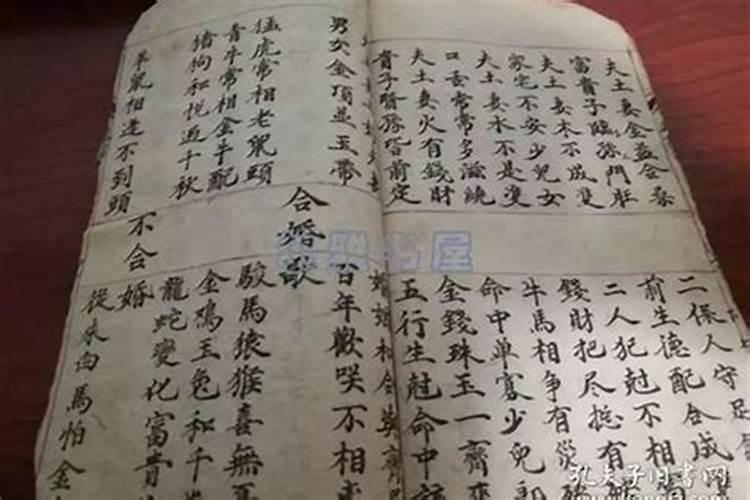 夫土妻金益合
富貴子臨孫門
夫土妻木不成雙
家宅不安少兒女
夫土妻水不是雙
口舌常常多滋繞
夫土妻火有錢財
貴子賢孫皆前定
二保人守足
前生德配合成
二人犯尅不相
錢財把尽總有
牛馬相争有災
命中单寡少兒郎
金錢珠玉一齊來
五行生尅命中
婚姻和合莫
男女金頂並玉帶
猛虎常相老鼠頭
青牛常相金牛配
猪狗和悦過千秋
羊鼠相逢不到頭
合婚歌
百年歡咲不相
駿馬猿猴喜無
金鸡玉兔和千
龍蛇變化富貴
不合婚
從來白馬怕金
孔夫子旧書网